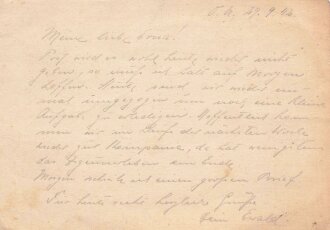 O.U., 29.9.42.
Meine liebe Trude!
Post wird es wohl heute nicht
geben, so muß ich halt auf Morgen
hoffen. Heute sind wir wieder ein
mal umgezogen um noch eine kleine
Aufgabe zu erledigen. Hoffentlich kom
men wir im Laufe der nächsten Woche
wieder zur Kompanie, da hat wenigstens
das Zigeunerleben ein Ende.
Morgen schreibe ich einen großen Brief.
Für heute recht herzliche Grüße
Dein Ewald.